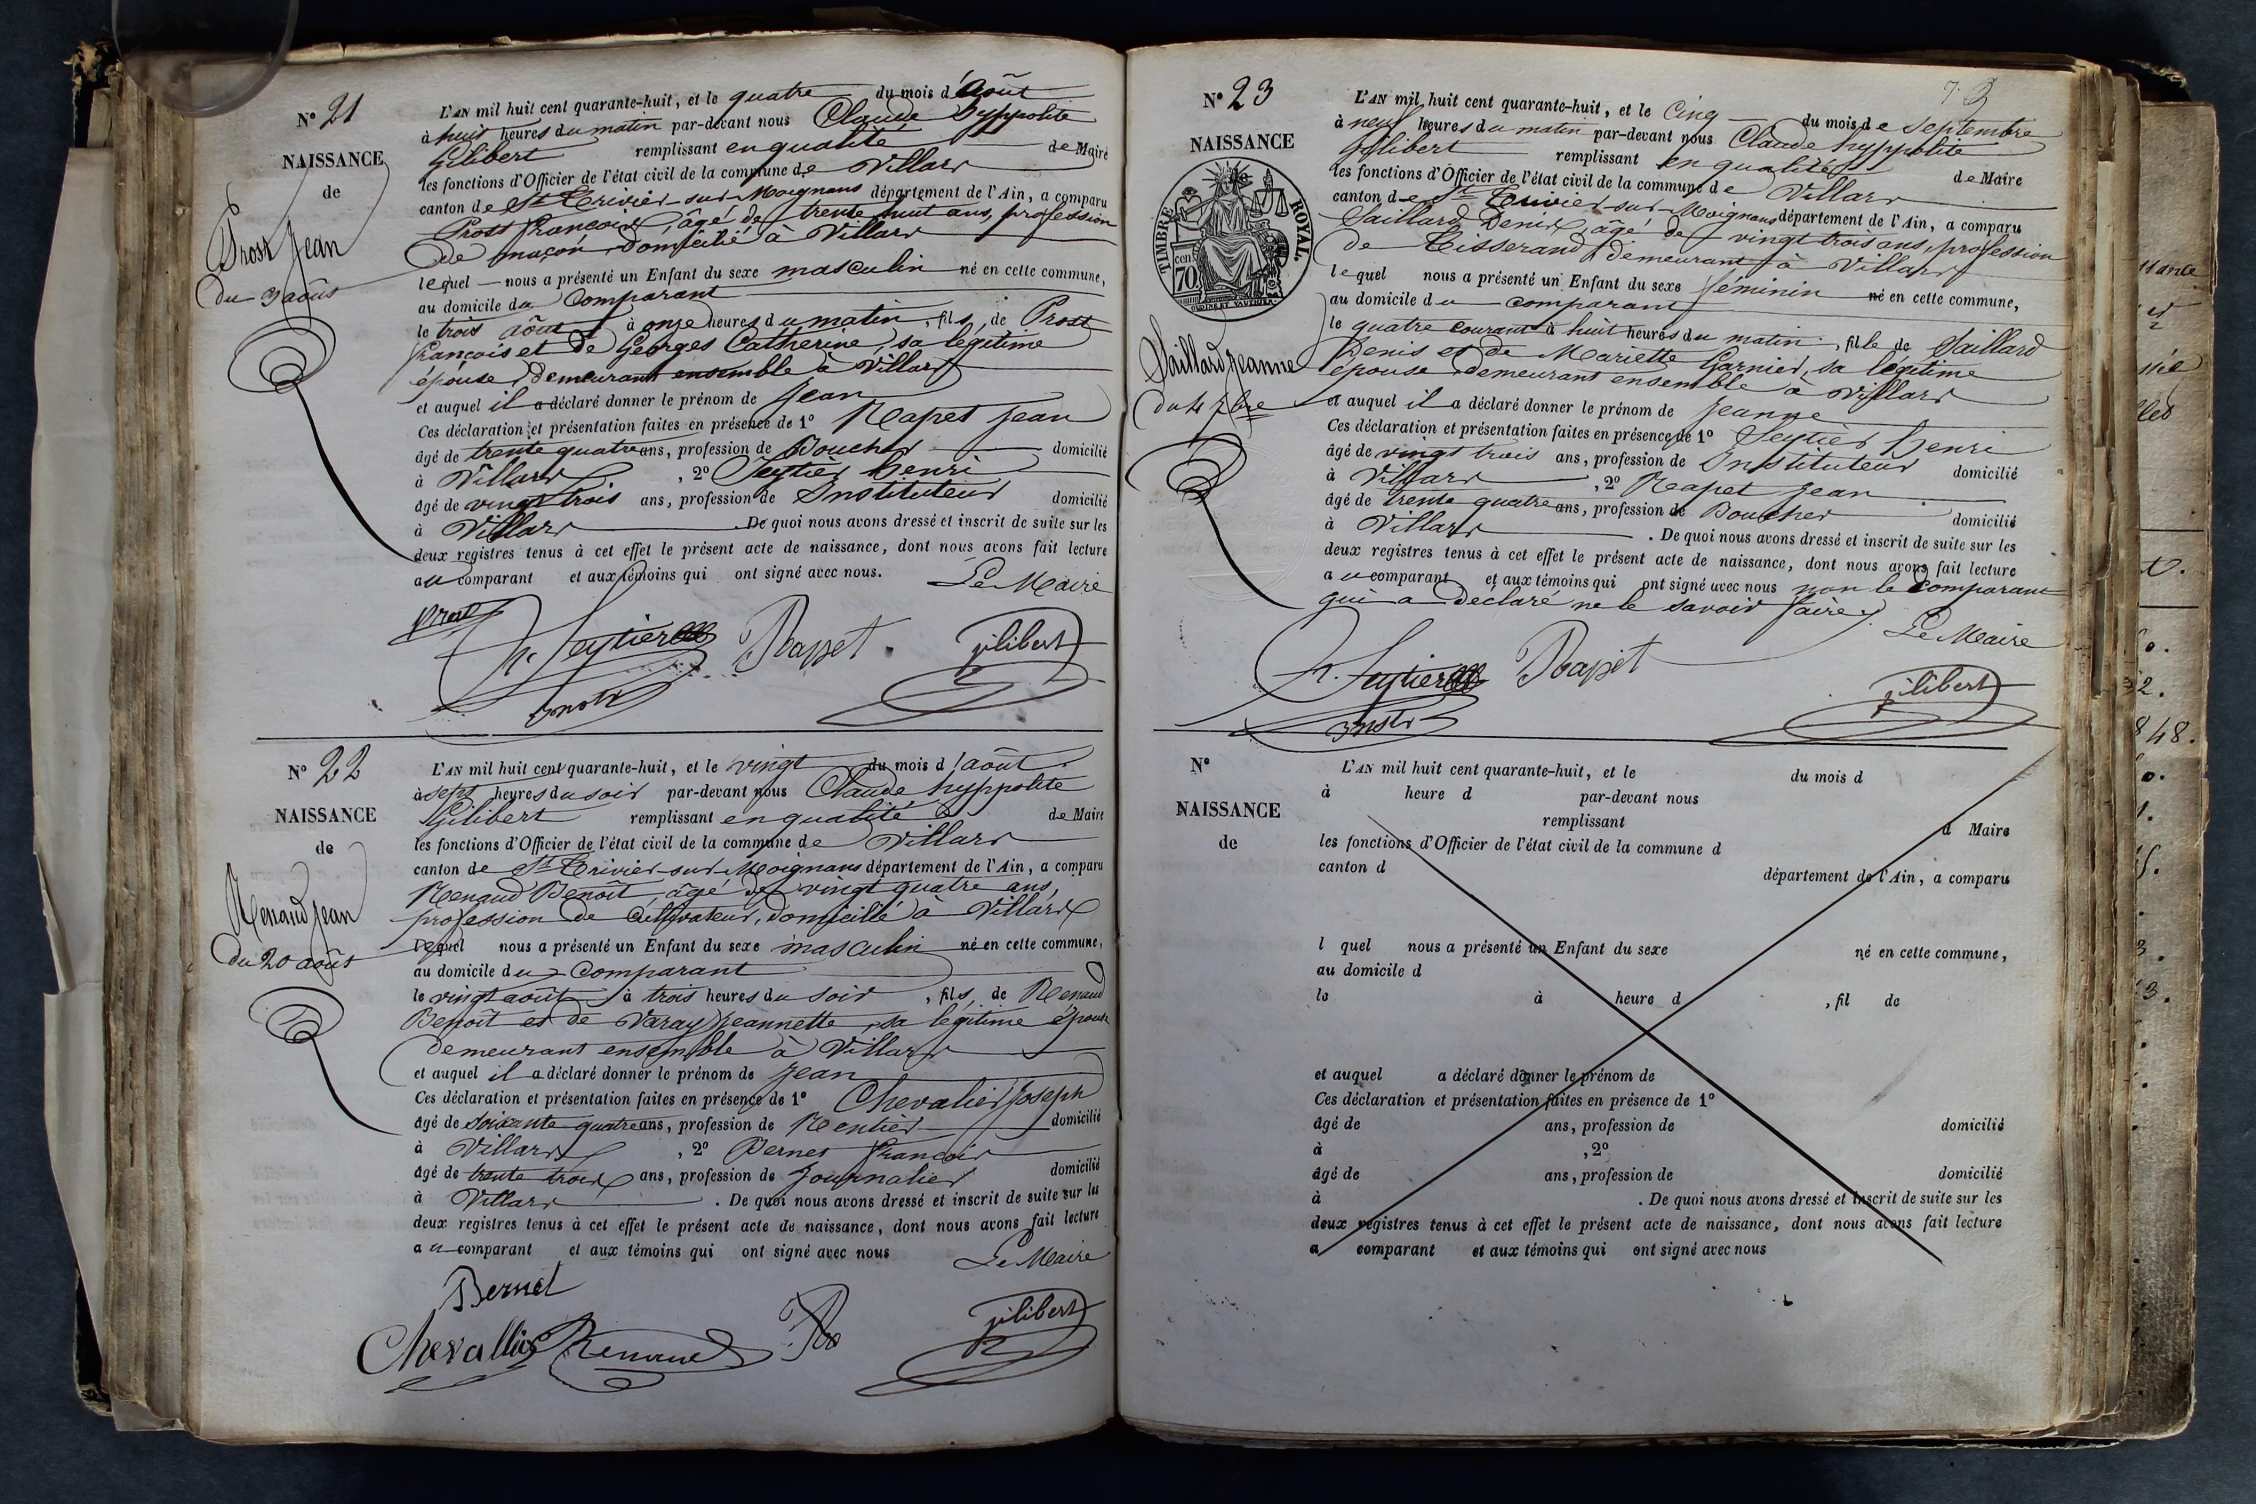 N° 21
NAISSANCE
de
Prost Jean
du 3 août
L'AN mil huit cent quarante-huit, et le quatre du mois d'Août
à huit heures du matin par-devant nous Claude hyppolite
Gilibert remplissant en qualité de Maire
les fonctions d'Officier de l'état civil de la commune de Villars
canton de St Trivier-sur-Moignans département de l'Ain, a comparu
Prost François, âgé de trente huit ans, profession
de maçon, domicilié à Villars
lequel nous a présenté un Enfant du sexe masculin né en cette commune,
au domicile du Comparant
le trois août à onze heures du matin, fils, de Prost
françois et de Georges Catherine, sa légitime
épouse, demeurant ensemble à Villars
et auquel il a déclaré donner le prénom de Jean
Ces déclaration et présentation faites en présence de 1° Rapet Jean
âgé de trente quatre ans, profession de Boucher domicilié
à Villars, 2° Seytier henri
âgé de vingt trois ans, profession de Instituteur domicilié
à Villars. De quoi nous avons dressé et inscrit de suite sur les
deux registres tenus à cet effet le présent acte de naissance, dont nous avons fait lecture
au comparant et aux témoins qui ont signé avec nous.
Le Maire
Prost
h. Seytier Rapet. gilibert
N° 22
NAISSANCE
de
Renaud Jean
du 20 août
L'AN mil huit cent quarante-huit, et le vingt du mois d'août.
à sept heures du soir par-devant nous Claude hyppolite
Gilibert remplissant en qualité de Maire
les fonctions d'Officier de l'état civil de la commune de Villars
canton de St Trivier-sur-Moignans département de l'Ain, a comparu
Renaud Benoît, âgé de vingt quatre ans,
profession de Cultivateur, domicilié à Villars
lequel nous a présenté un Enfant du sexe masculin né en cette commune,
au domicile du Comparant
le vingt août à trois heures du soir, fils, de Renaud
Benoît et de Varay Jeannette, sa légitime épouse
demeurant ensemble à Villars
et auquel il a déclaré donner le prénom de Jean
Ces déclaration et présentation faites en présence de 1° Chevalier Joseph
âgé de soixante quatre ans, profession de Rentier domicilié
à Villars, 2° Bernet François
âgé de trente trois ans, profession de Journalier domicilié
à Villars. De quoi nous avons dressé et inscrit de suite sur les
deux registres tenus à cet effet le présent acte de naissance, dont nous avons fait lecture
au comparant et aux témoins qui ont signé avec nous
Le Maire
Bernet
Chevallier Renaud gilibert
N° 23
NAISSANCE
TIMBRE ROYAL
70 cen
Saillard Jeanne
du 4 7bre
L'AN mil huit cent quarante-huit, et le Cinq du mois de Septembre
à neuf heures du matin par-devant nous Claude hyppolite
Gilibert remplissant en qualité de Maire
les fonctions d'Officier de l'état civil de la commune de Villars
canton de St Trivier-sur-Moignans département de l'Ain, a comparu
Saillard Denis, âgé de vingt trois ans, profession
de Tisserand, demeurant à Villars
lequel nous a présenté un Enfant du sexe féminin né en cette commune,
au domicile du comparant
le quatre courant à huit heures du matin, fille de Saillard
Denis et de Mariette Garnier, sa légitime
épouse, demeurant ensemble à Villars
et auquel il a déclaré donner le prénom de Jeanne
Ces déclaration et présentation faites en présence de 1° Seytier henri
âgé de vingt trois ans, profession de Instituteur domicilié
à Villars, 2° Rapet Jean
âgé de trente quatre ans, profession de Boucher domicilié
à Villars. De quoi nous avons dressé et inscrit de suite sur les
deux registres tenus à cet effet le présent acte de naissance, dont nous avons fait lecture
au comparant et aux témoins qui ont signé avec nous non le Comparant
qui a déclaré ne le savoir faire.
Le Maire
h. Seytier Rapet gilibert
Instr
N°
NAISSANCE
de
L'AN mil huit cent quarante-huit, et le du mois d
à heure d par-devant nous
remplissant d Maire
les fonctions d'Officier de l'état civil de la commune d
canton d département de l'Ain, a comparu
l quel nous a présenté un Enfant du sexe né en cette commune,
au domicile d
le à heure d , fil de
et auquel a déclaré donner le prénom de
Ces déclaration et présentation faites en présence de 1°
âgé de ans, profession de domicilié
à , 2°
âgé de ans, profession de domicilié
à . De quoi nous avons dressé et inscrit de suite sur les
deux registres tenus à cet effet le présent acte de naissance, dont nous avons fait lecture
a comparant et aux témoins qui ont signé avec nous